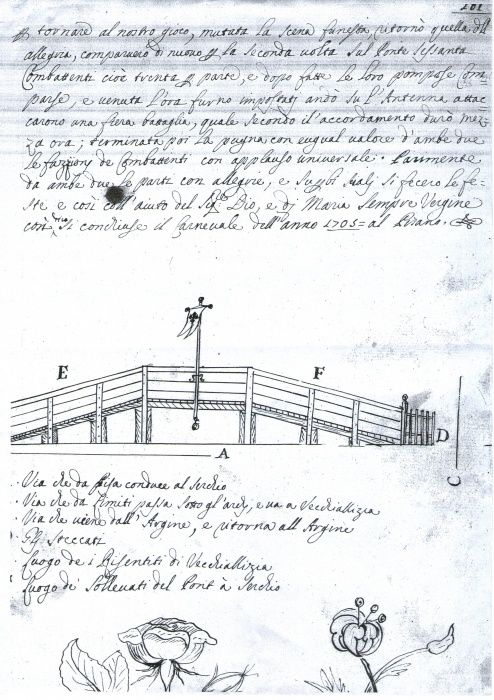 101
tornare al nostro gioco, mutata la scena funesta, ritornò quella dll
allegria, comparuero di nuouo p la seconda volta sul Ponte sessanta
Combattenti cioè trenta p parte, e dopo fatte le loro pompose Com=
parse, e venuta l'ora furno impostati andò su l'Antenna attac
carono una fiera battaglia, quale secondo il accordamento durò mez=
za ora; terminata poi la pugna con eugual valore d'ambe due
le con applauso universale.
da ambe due le parti con allegrie, e si fecero le fe=
ste e così coll'aiuto del Dio, e di Maria sempre Vergine
con si conchiuse il Carneuale dell'anno 1705= al Pisano.
E
F
A
D
C
Via che da Pisa conduce al Serchio
Via che da Limiti passa sotto gl'archi, e va a Vecchiallizia
Via che viene dall'Argine, e ritorna all Argine
Gli Steccati
Luogo de i Risentiti di Vecchiallizia
Luogo de' Solleuati del Pont à Serchio